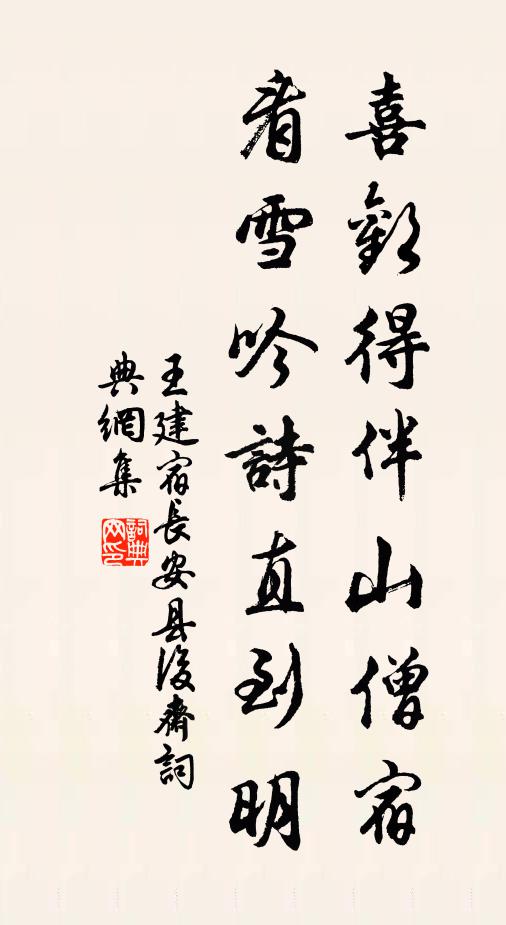 喜歡得伴山僧宿
看雪吟詩直到明
王建宿長安县後齋詞
典網集
詞典网印